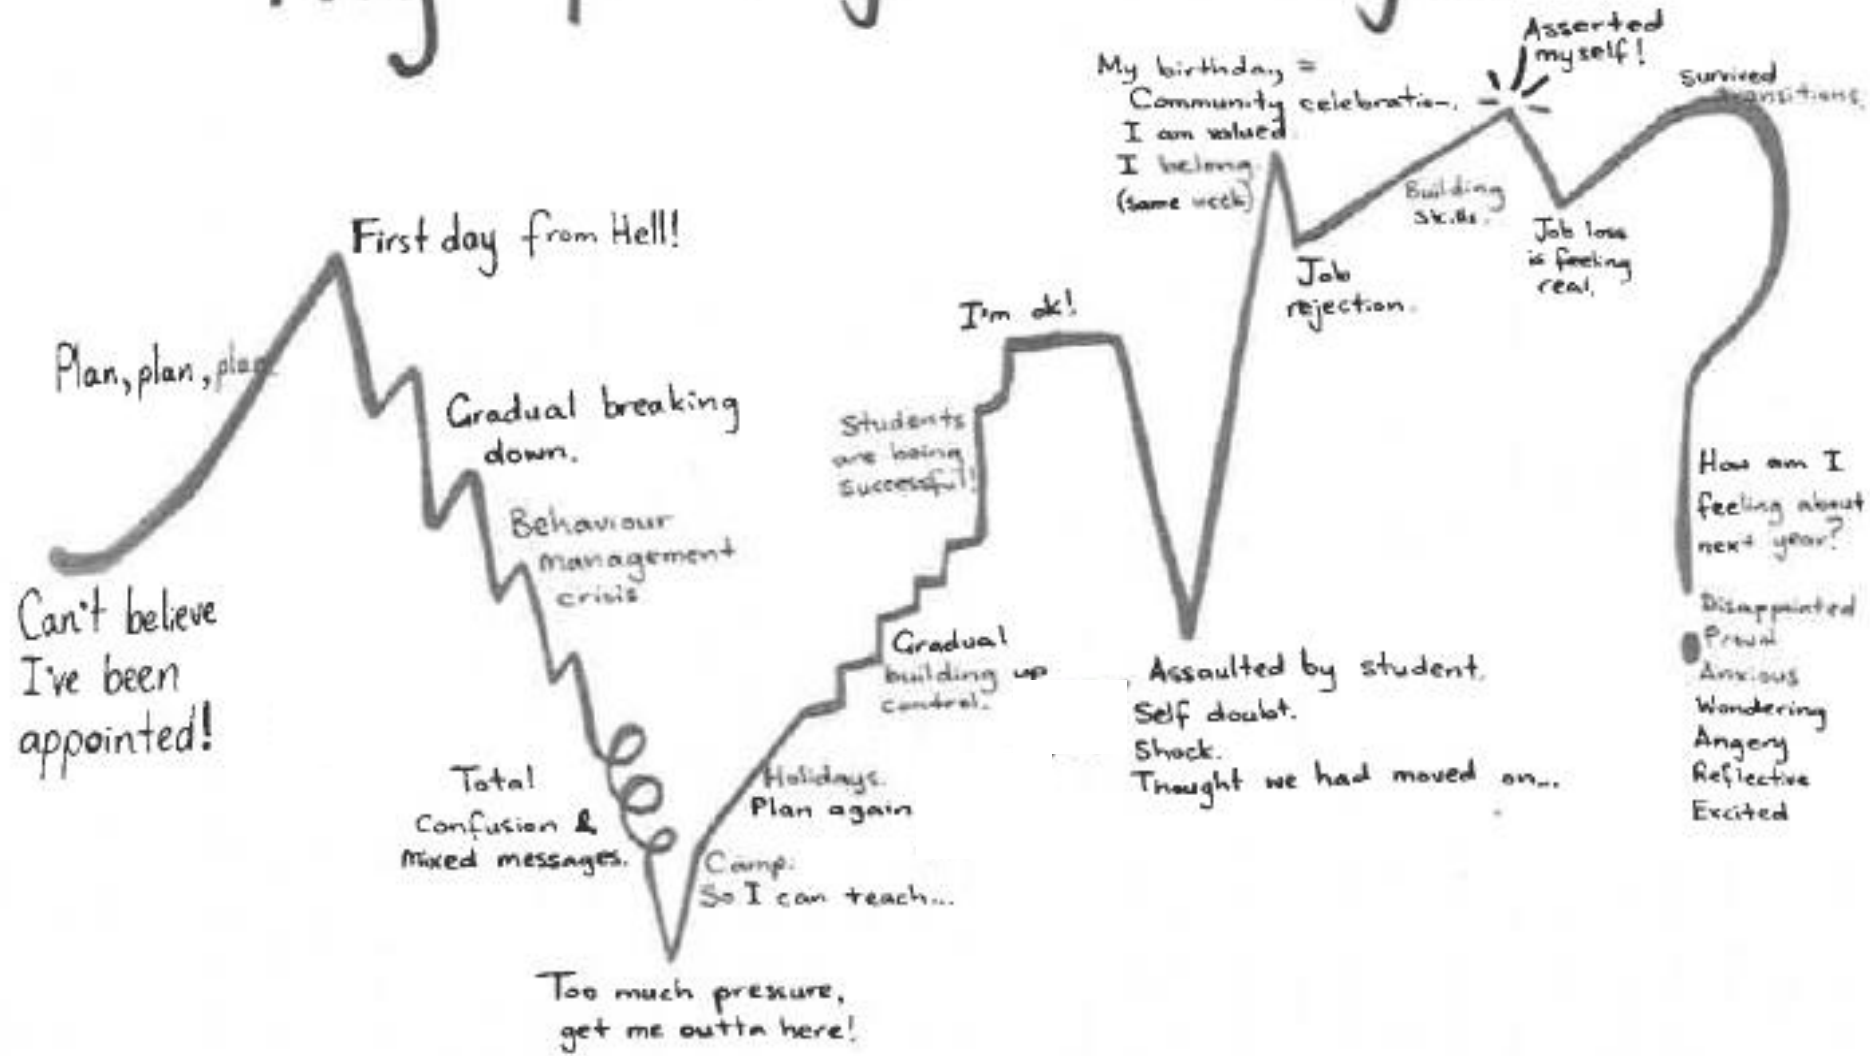 Can't believe
I've been
appointed!
Plan, plan, plan
First day from Hell!
Gradual breaking
down.
Behaviour
management
crisis
Total
Confusion &
Mixed messages.
Too much pressure,
get me outta here!
Camp.
So I can teach...
Holidays.
Plan again
Gradual
building up
control.
Students
are being
successful!
I'm ok!
Assaulted by student.
Self doubt.
Shock.
Thought we had moved on...
My birthday =
Community celebration.
I am valued
I belong
(same week)
Job
rejection.
Building
skills.
Asserted
myself!
Job loss
is feeling
real.
Survived
transitions.
How am I
feeling about
next year?
Disappointed
Proud
Anxious
Wondering
Angery
Reflective
Excited